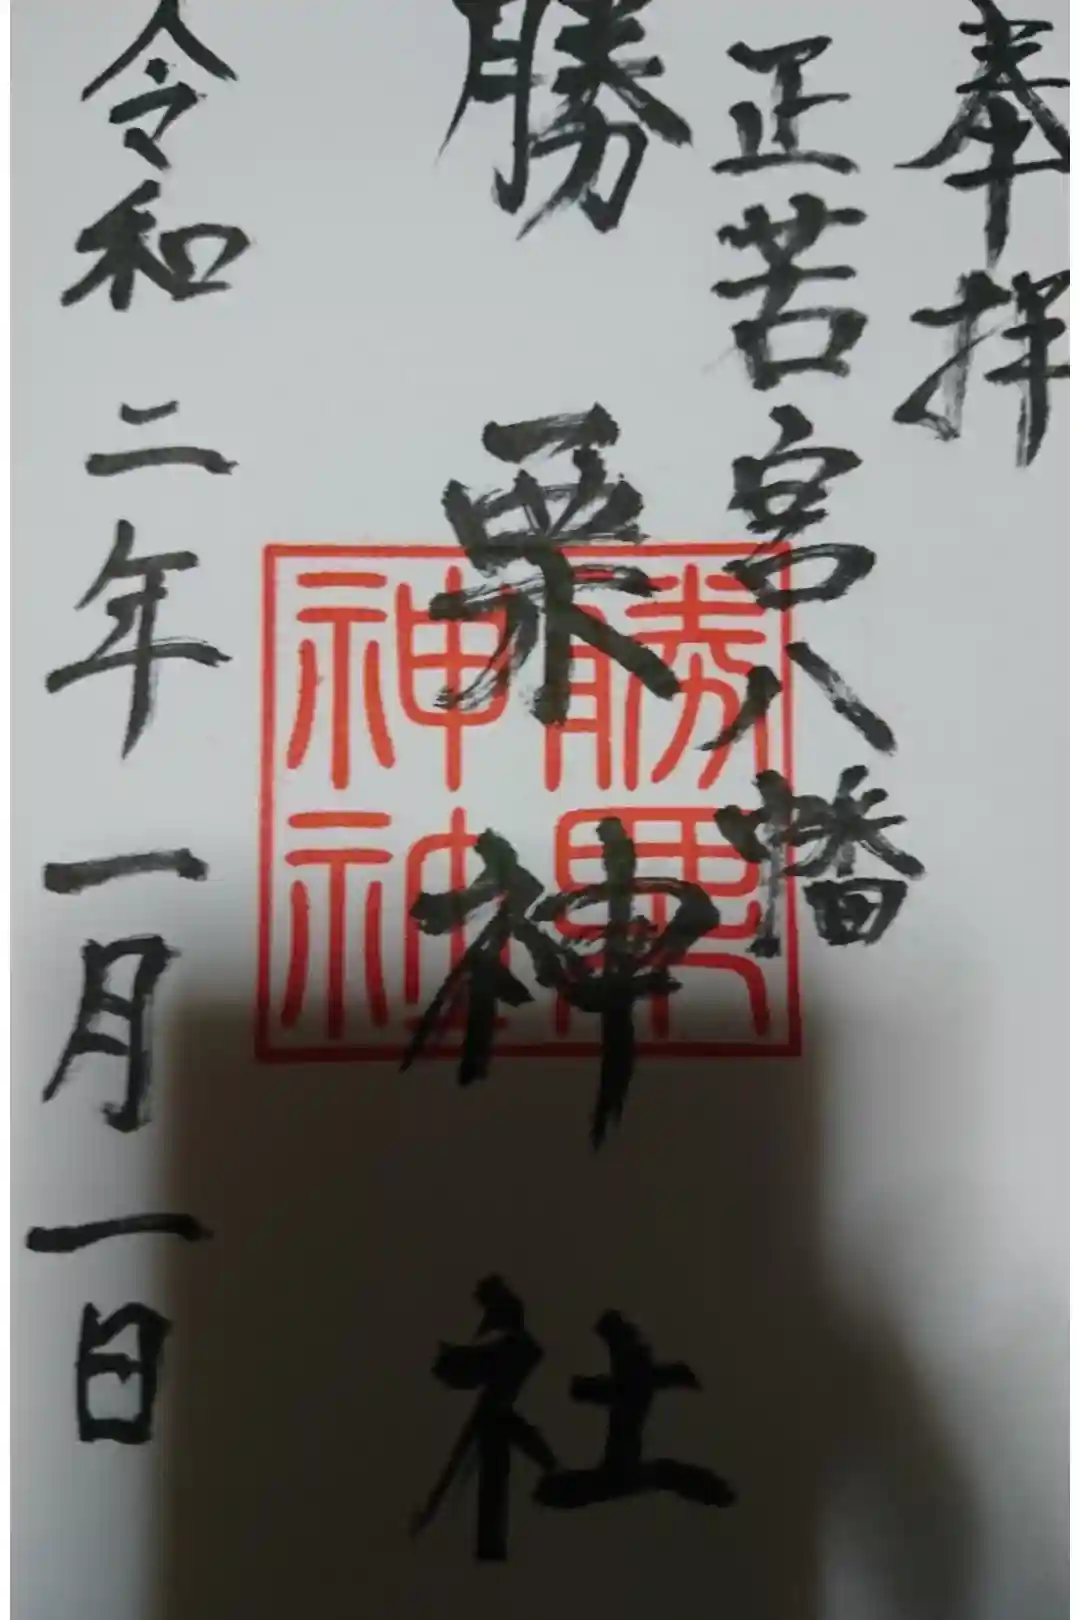 奉拝
正若宮八幡
勝栗神社
令和二年一月一日
勝栗
神社